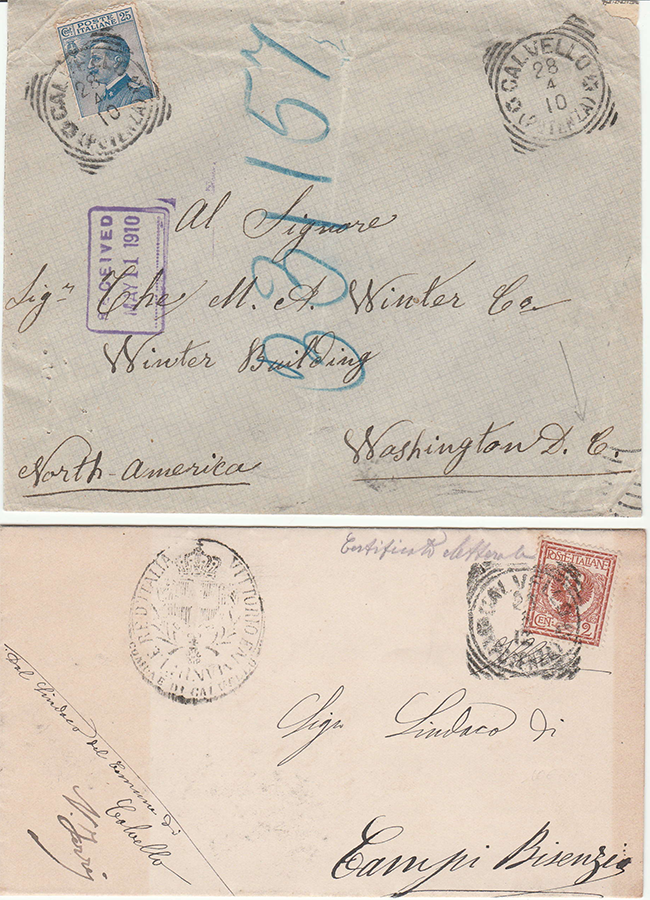 POSTE ITALIANE
CENT 25
CALVELLO
28
4
10
(POTENZA)
CALVELLO
28
4
10
(POTENZA)
83115
RECEIVED
MAY 11 1910
Al Signore
Sigr The M. A. Winter Co
Winter Building
Washington D. C.
North-America
Certificato
POSTE ITALIANE
CENT 2
CALVELLO
12
(POTENZA)
VITTORIO
RE D'ITALIA
COMUNE DI CALVELLO
Sigr Sindaco di
Campi Bisenzio
Dal Sindaco del Comune di
Calvello